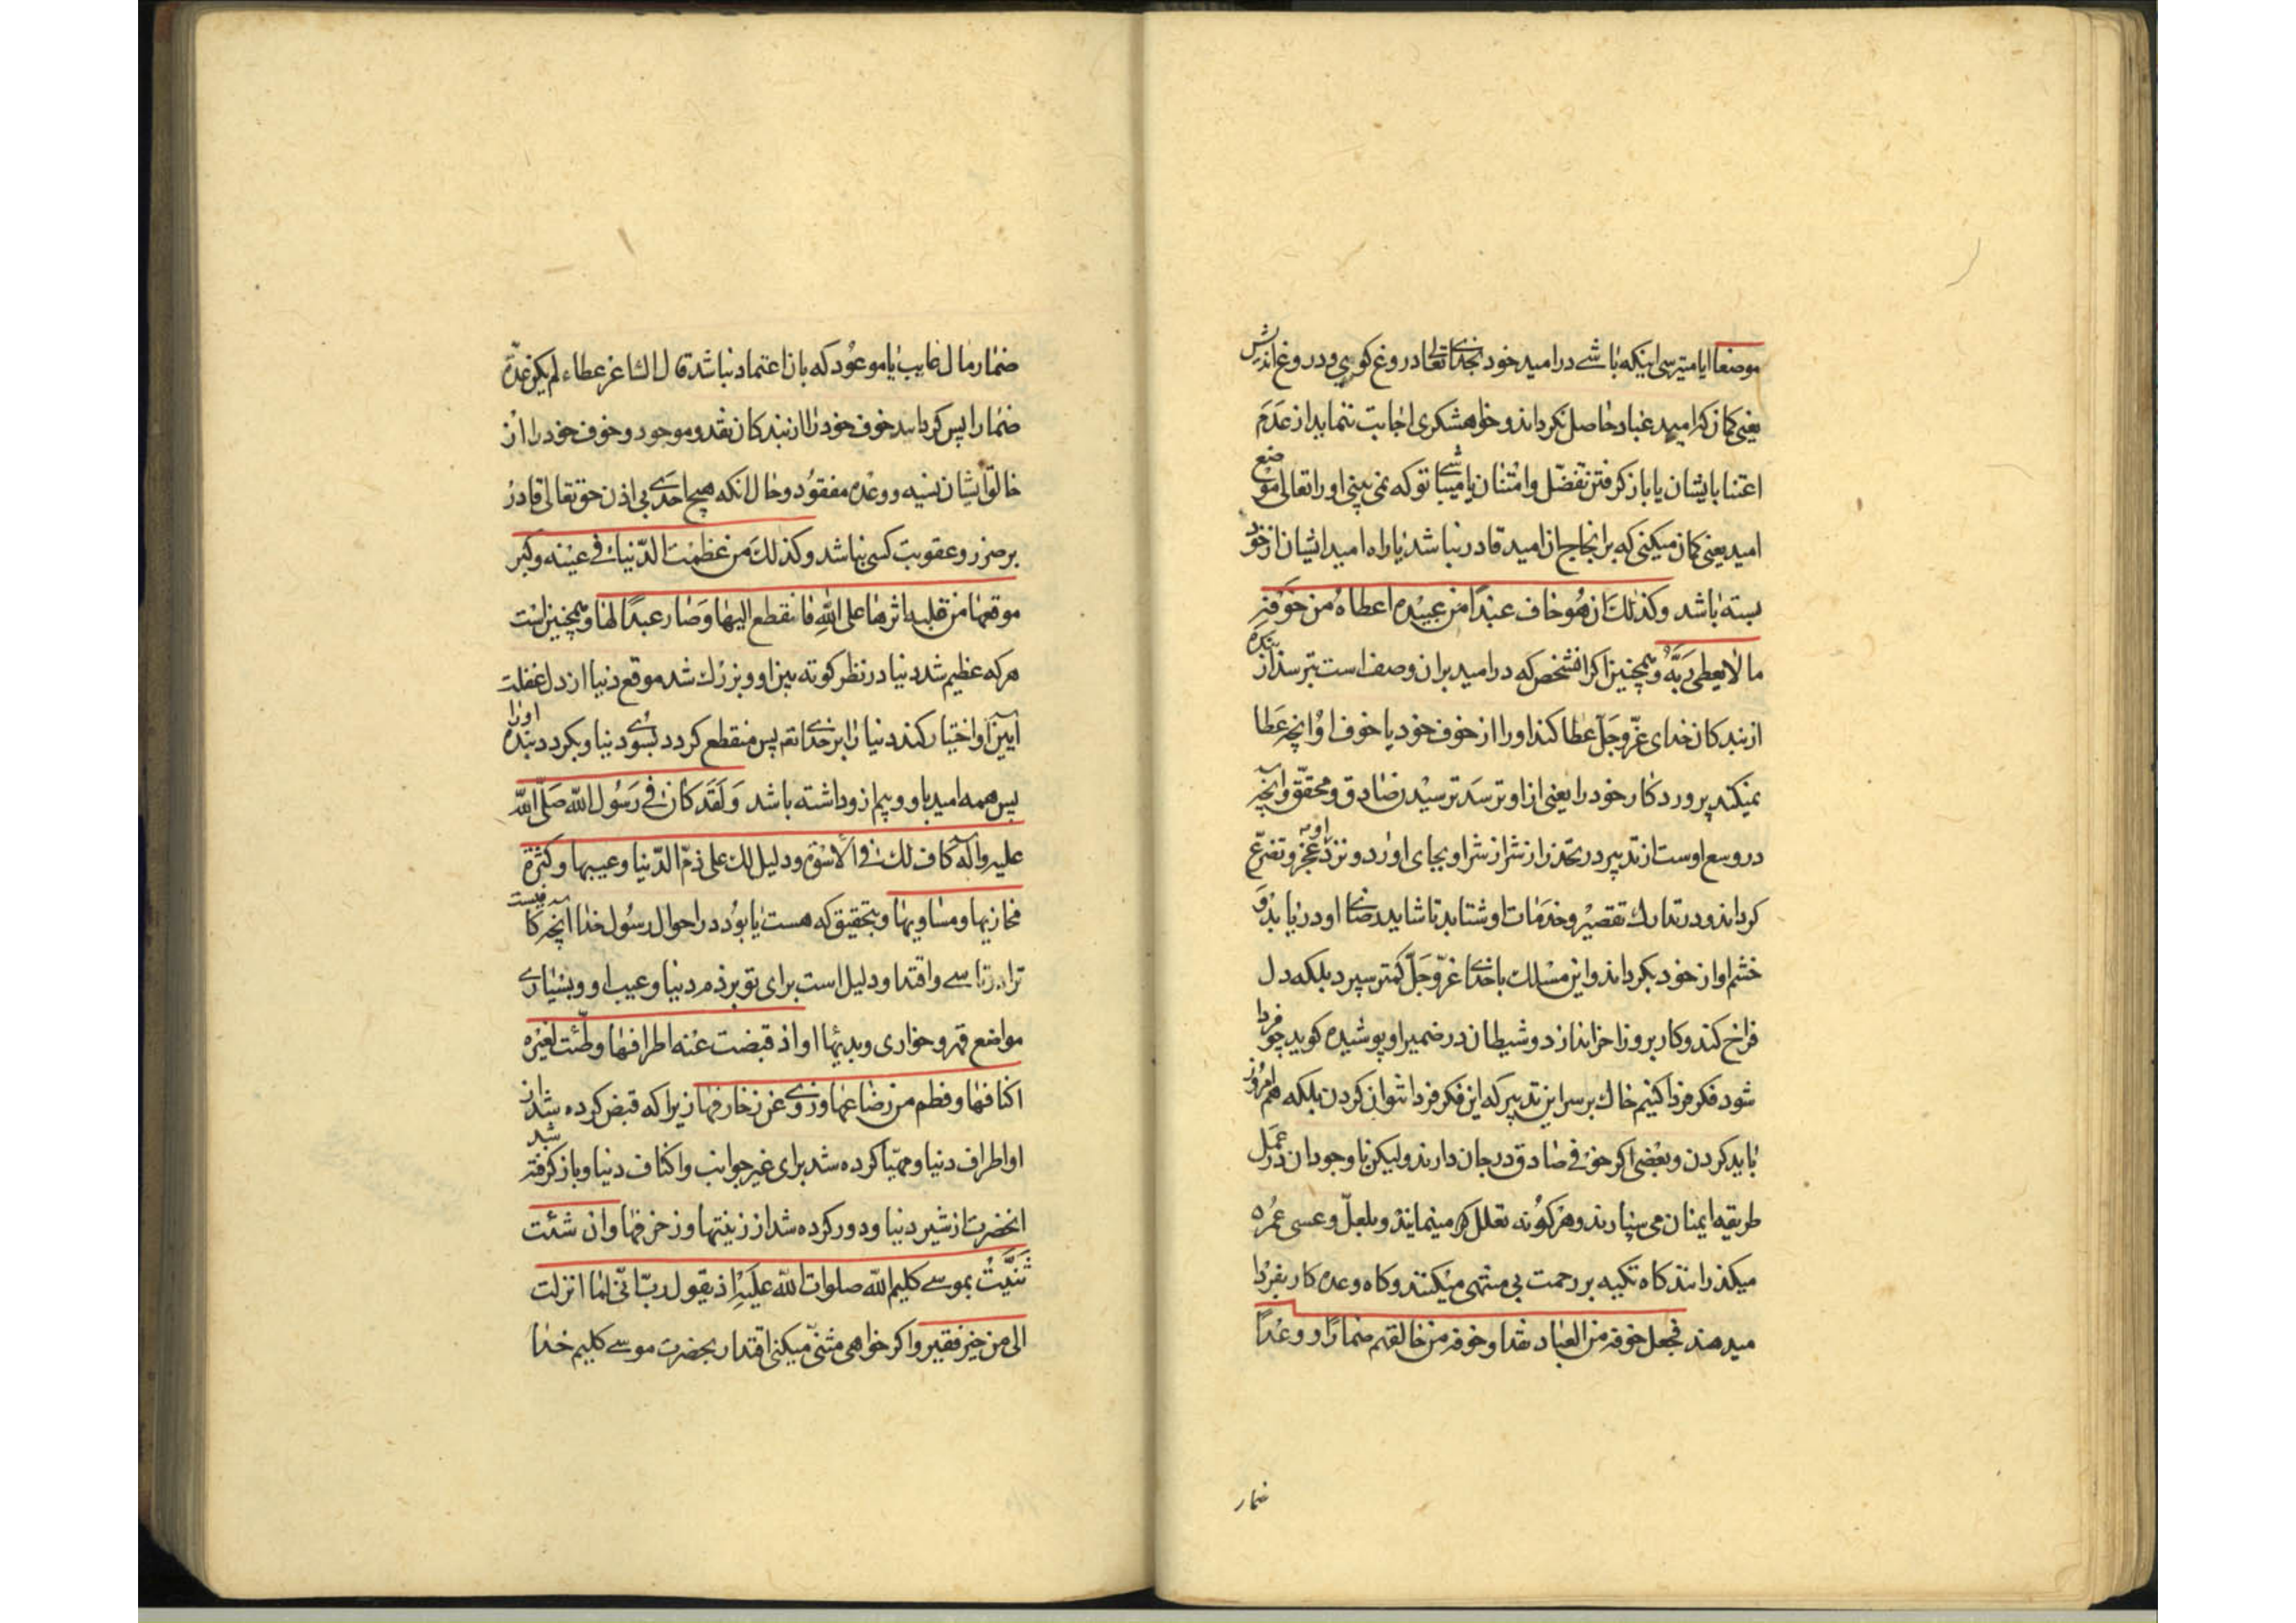 موضعا ایا میترسی اینکه باشے در امید خود بخدای تعالی دروغ کوی و دروغ اندیش
یعنی کمان که امید عباد حاصل نکرداند و خواهشکری اجابت ننماید از عدم
اعتنا بایشان یا باز کرفتن تفضّل و امتنان یا میباشے تو که نمی بینی او را تعالی موضع
امید یعنی کمان میکنی که بر انجاح ان امید قادر نباشد یا راه امید ایشان از خود
بسته باشد وکذلك ان هو خاف عبدًا من عبیده اعطاه من خوفه
ما لا یعطی ربّه و همچنین اکر انشخص که در امید بران وصف است بترسد از بنده
از بندکان خدای عزّ و جلّ عطا کند او را از خوف خود یا خوف او انچه عطا
نمیکند پروردکار خود را یعنی از او ترسد ترسیدن صادق و محقّق و انچه
در وسع اوست از تدبیر در تحذر از شر او بجای اورد و نزد او عجز و تضرّع
کرداند و در تدارك تقصیر و خدمات او شتابد تا شاید رضای او دریابد و
خشم او از خود بکرداند و این مسلك با خدای عزّ و جلّ کمتر سپرد بلکه دل
فراخ کند و کار بروزاخر اندازد و شیطان در ضمیر او پوشیده کوید چو فردا
شود فکر فردا کنیم خاك بر سر این تدبیر که این فکر فردا نتوان کردن بلکه هم امروز
باید کردن و بعضی اکر خوفی صادق در جان دارند ولیکن با وجود ان در عمل
طریقه ایمنان می سپارند و هر کونه تعلل که مینمایند و بلعلّ و عسی عمره
میکذرانند کاه تکیه بر رحمت بی منتهی میکنند و کاه وعده کار بفردا
میدهند فجعل خوفه من العباد نقدا و خوفه من خالقهم ضمارًا و وعدًا
ضمار
ضمار مال غایب یا موعود که بان اعتماد نباشد قال الشاعر عطاء لم یکن عدة
ضمارا پس کرداند خوف خود را از بندکان نقد و موجود و خوف خود را از
خالق ایشان نسیه و وعده مفقود و حال انکه هیچ احدی بی اذن حق تعالی قادر
بر ضرر و عقوبت کسی نباشد وکذلك من عظمت الدّنیا فی عینه وکبر
موقعها من قلبه اثرها علی الله فانقطع الیها وصار عبدًا لها و همچنین است
هر که عظیم شد دنیا در نظر کوته بین او و بزرك شد موقع دنیا از دل غفلت
ایین او اختیار کند دنیا را بر خدای تعه پس منقطع کردد بسوی دنیا و بکردد بنده او را
پس همه امید باو و بیم ازو داشته باشد ولقد کان فی رسول الله صلّی الله
علیه واله کاف لك فی الاسوة ودلیل لك علی ذمّ الدّنیا وعیبها وکثرة
مخازیها ومساویها و بتحقیق که هست یا بود در احوال رسول خدا انچه کافیست
ترا در تاسے و اقتدا و دلیل است برای تو بر ذم دنیا و عیب او و بسیاری
مواضع قهر و خواری و بدیها او اذ قبضت عنه اطرافها وطّئت لغیره
اکنافها وفطم من رضاعها وزوی عن زخارفها زیرا که قبض کرده شد از
او اطراف دنیا و مهیّا کرده شد برای غیر جوانب و اکناف دنیا و باز کرفته شد
انحضرت از شیر دنیا و دور کرده شد از زینتها و زخرفها وان شئت
ثنّیت بموسے کلیم الله صلوات الله علیه اذ یقول ربّ انّی لما انزلت
الی من خیر فقیر و اکر خواهی مثنّی میکنی اقتدا ر بحضرت موسے کلیم خدا